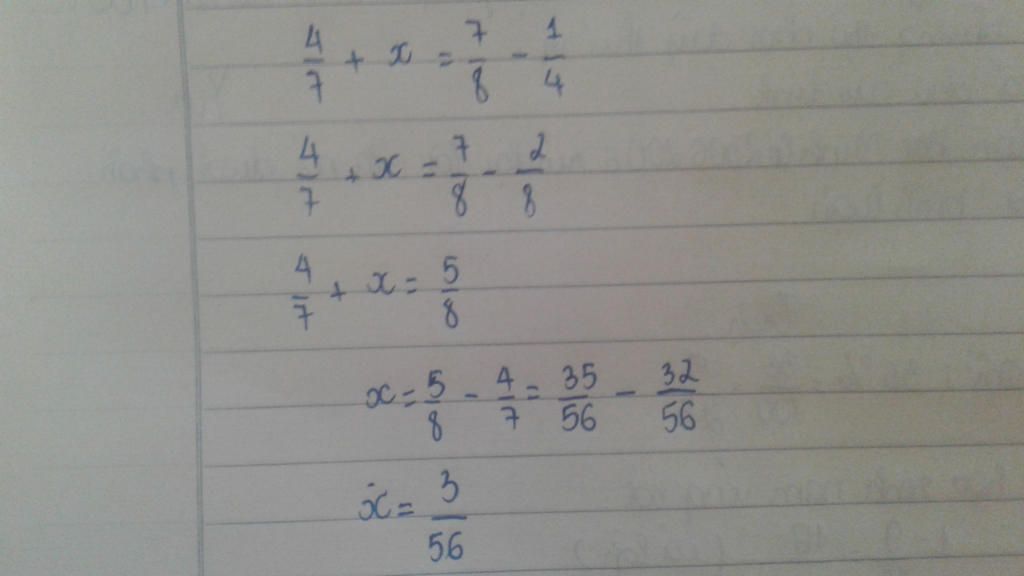 4/7 + x = 7/8 - 1/4
4/7 + x = 7/8 - 2/8
4/7 + x = 5/8
x = 5/8 - 4/7 = 35/56 - 32/56
x = 3/56